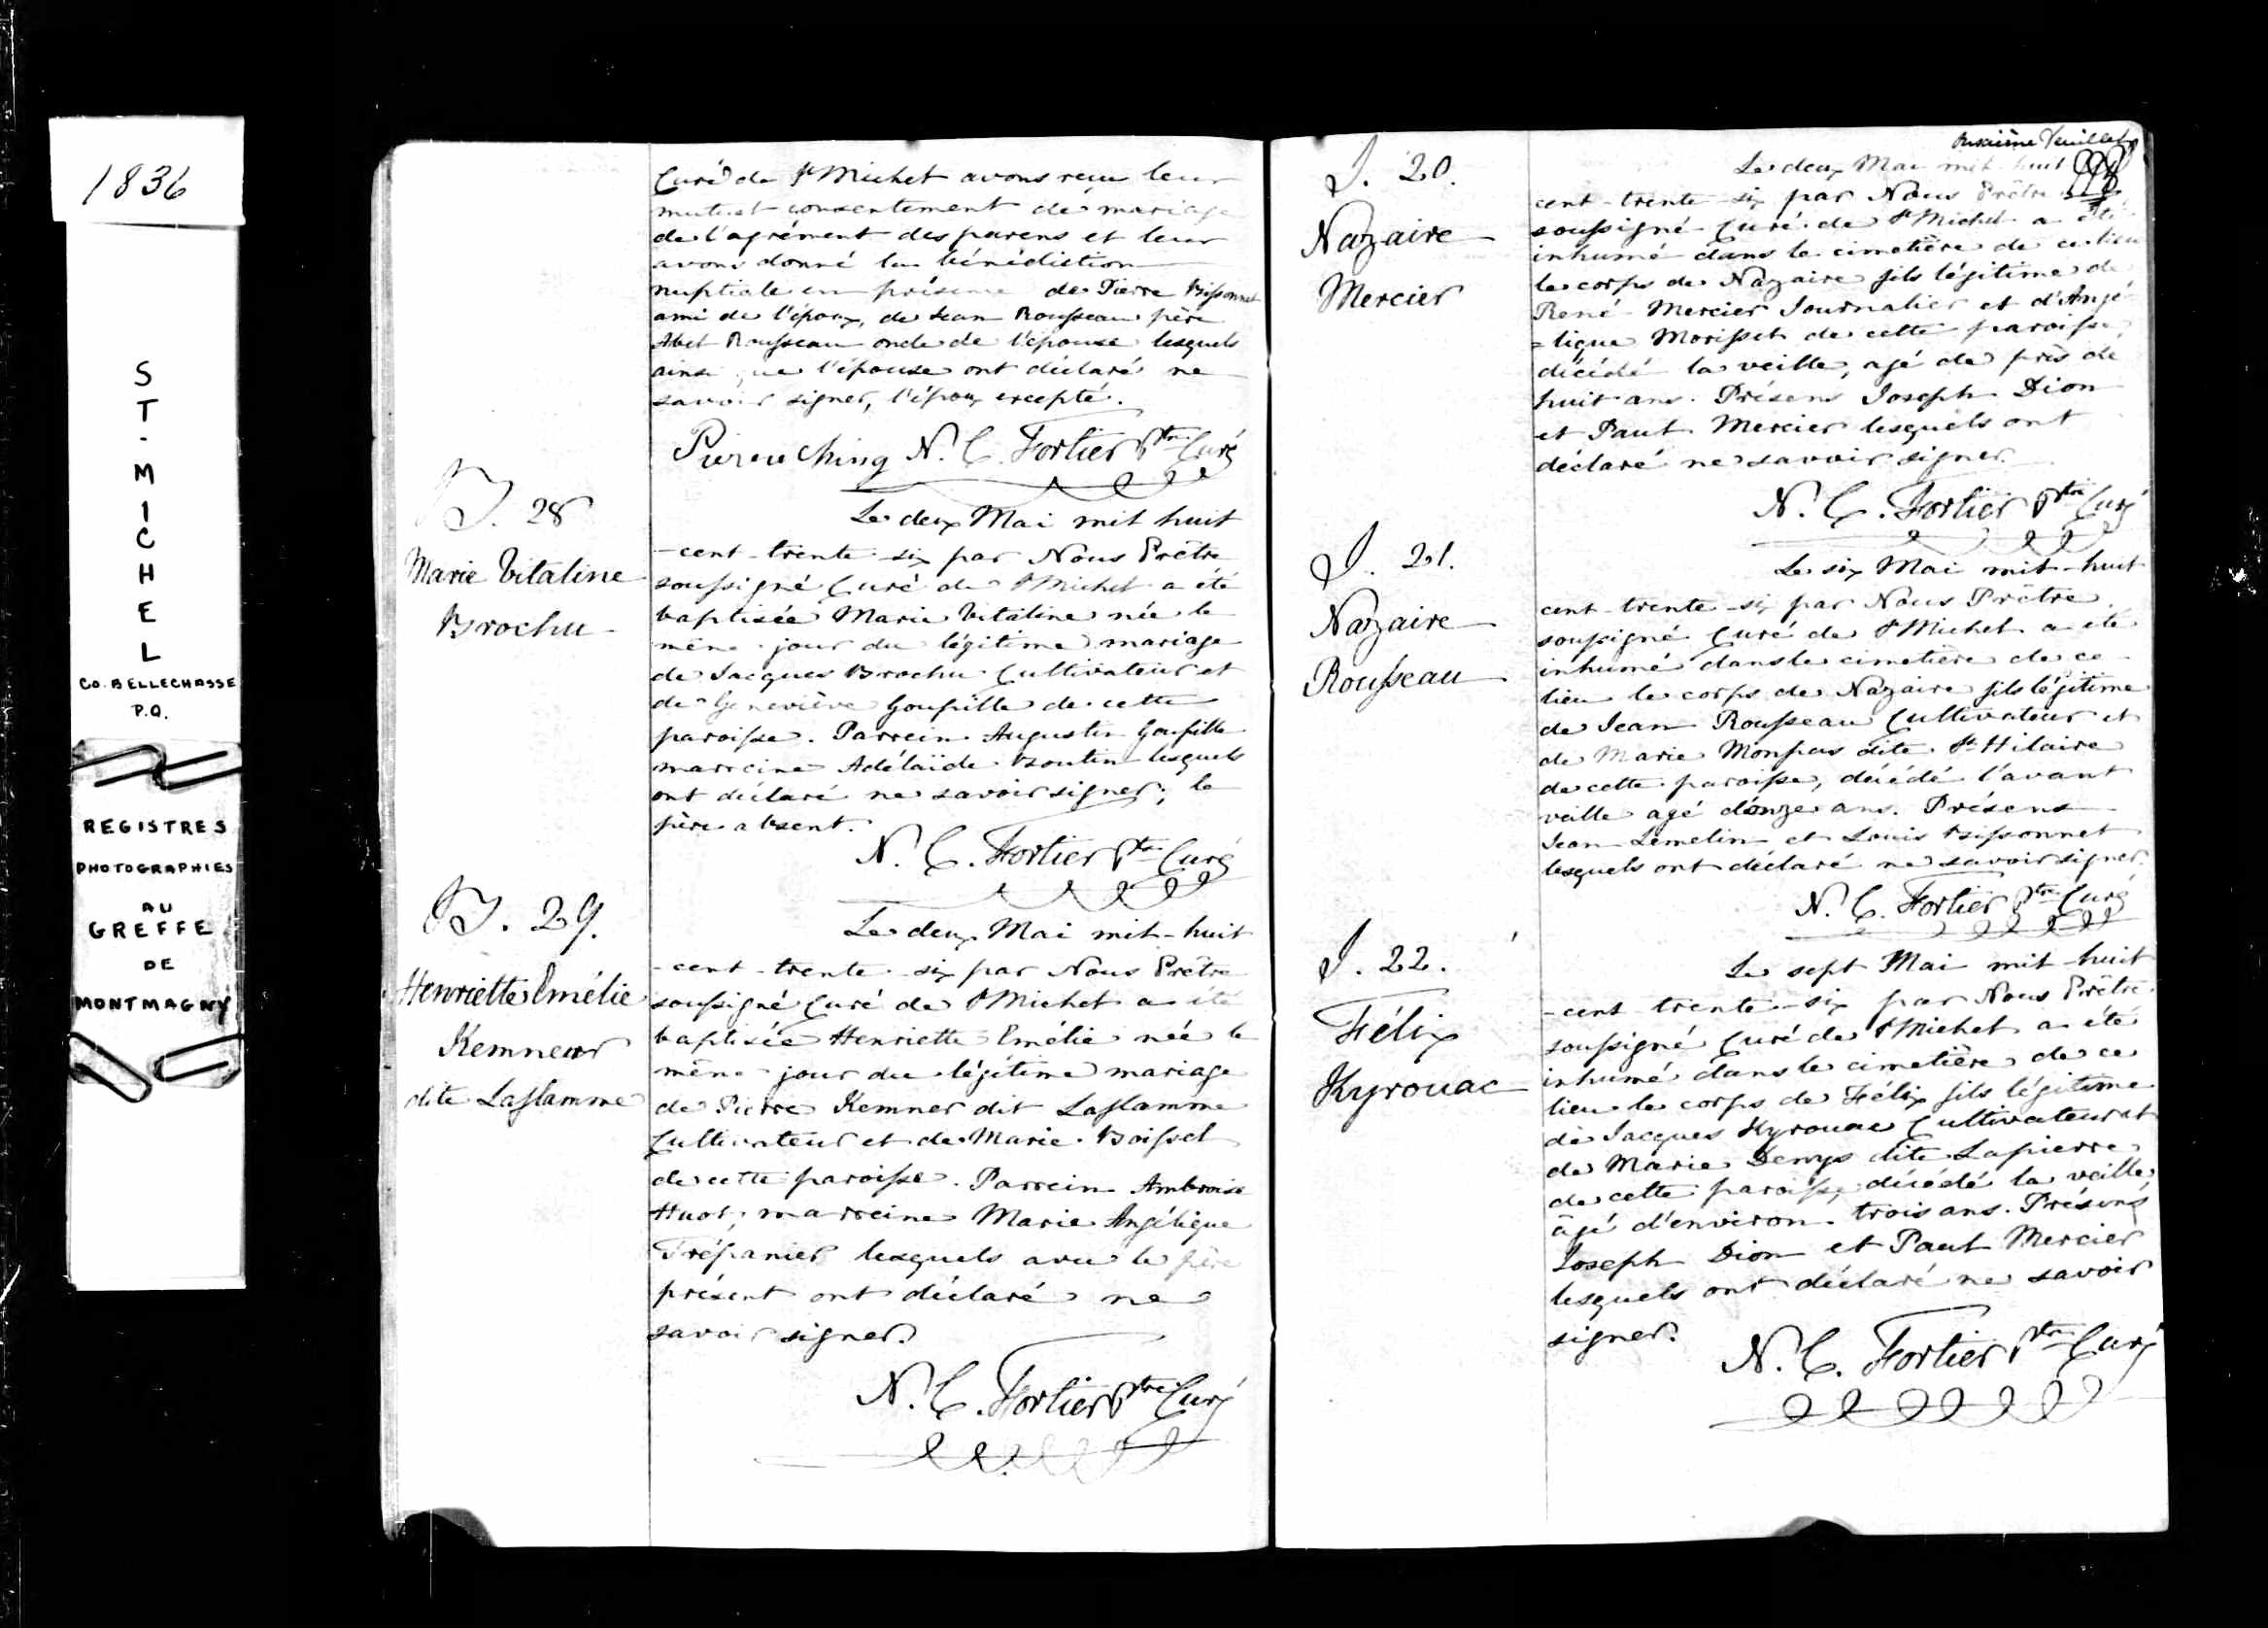 1836
ST. MICHEL
CO. BELLECHASSE
P.Q.
REGISTRES
PHOTOGRAPHIES
AU
GREFFE
DE
MONTMAGNY
Curé de St Michel avons reçu leur
mutuel consentement de mariage
de l'agrément des parens et leur
avons donné la bénédiction
nuptiale en présence de Pierre Bissonnet
ami de l'époux, de Jean Rousseau père
Abel Rousseau oncle de l'épouse lesquels
ainsi que l'épouse ont déclaré ne
savoir signer, l'époux excepté.
N. C. Fortier Ptre Curé
B. 28
Marie Vitaline
Brochu
Le deux Mai mil huit
-cent-trente-six par Nous Prêtre
soussigné Curé de St Michel a été
baptisée Marie Vitaline née le
même jour du légitime mariage
de Jacques Brochu Cultivateur et
de Geneviève Goupille de cette
paroisse. Parrein Augustin Goupille
marreine Adélaïde Boutin lesquels
ont déclaré ne savoir signer; le
père absent.
N. C. Fortier Ptre Curé
B. 29.
Henriette Emélie
Kemneur
dite Laflamme
Le deux Mai mil-huit
-cent-trente-six par Nous Prêtre
soussigné Curé de St Michel a été
baptisée Henriette Emélie née le
même jour du légitime mariage
de Pierre Kemner dit Laflamme
Cultivateur et de Marie Boissel
de cette paroisse. Parrein Ambroise
Huot; marreine Marie Angélique
Trépanier lesquels avec le père
présent ont déclaré ne
savoir signer.
N. C. Fortier Ptre Curé
Onzième feuillet
S. 20.
Nazaire
Mercier
Le deux Mai mil-huit
cent-trente-six par Nous Prêtre
soussigné Curé de St Michel a été
inhumé dans le cimetière de ce lieu
le corps de Nazaire fils légitime de
René Mercier Journalier et d'Angé-
=lique Morisset de cette paroisse,
décédé la veille, agé de près de
huit ans. Présens Joseph Dion
et Paul Mercier lesquels ont
déclaré ne savoir signer.
N. C. Fortier Ptre Curé
S. 21.
Nazaire
Rousseau
Le six Mai mil-huit
cent-trente-six par Nous Prêtre
soussigné Curé de St Michel a été
inhumé dans le cimetière de ce
lieu le corps de Nazaire fils légitime
de Jean Rousseau Cultivateur et
de Marie Monpas dite St Hilaire
de cette paroisse, décédé l'avant
veille agé d'onze ans. Présens
Jean Lemelin et Louis Bissonnet
lesquels ont déclaré ne savoir signer.
N. C. Fortier Ptre Curé
S. 22.
Félix
Kyrouac
Le sept Mai mil-huit
-cent trente-six par Nous Prêtre
soussigné Curé de St Michel a été
inhumé dans le cimetière de ce
lieu le corps de Félix fils légitime
de Jacques Kyrouac Cultivateur et
de Marie Denys dite Lapierre
de cette paroisse, décédé la veille,
âgé d'environ trois ans. Présens
Joseph Dion et Paul Mercier
lesquels ont déclaré ne savoir
signer.
N. C. Fortier Ptre Curé